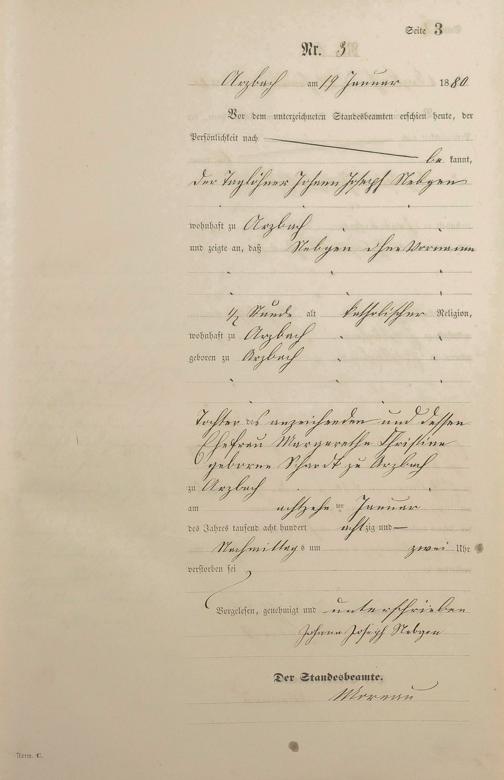 Seite 3
Nr. 3
Arzbach am 19 Januar 1880
Vor dem unterzeichneten Standesbeamten erschien heute, der
Persönlichkeit nach
be kannt,
der Taglöhner Johann Joseph Nebgen
wohnhaft zu Arzbach
und zeigte an, daß Nebgen ohne Vorname
1/2 Stunde alt katholischer Religion,
wohnhaft zu Arzbach
geboren zu Arzbach
Tochter des anzeichenden und dessen
Ehefrau Margarethe Christine
geborne Schardt zu Arzbach
zu Arzbach
am achtzehn ten Januar
des Jahres tausend acht hundert achtzig und —
Nachmittags um zwei Uhr
verstorben sei
Vorgelesen, genehmigt und unterschrieben
Johann Joseph Nebgen
Der Standesbeamte.
Moreau
Form. C.